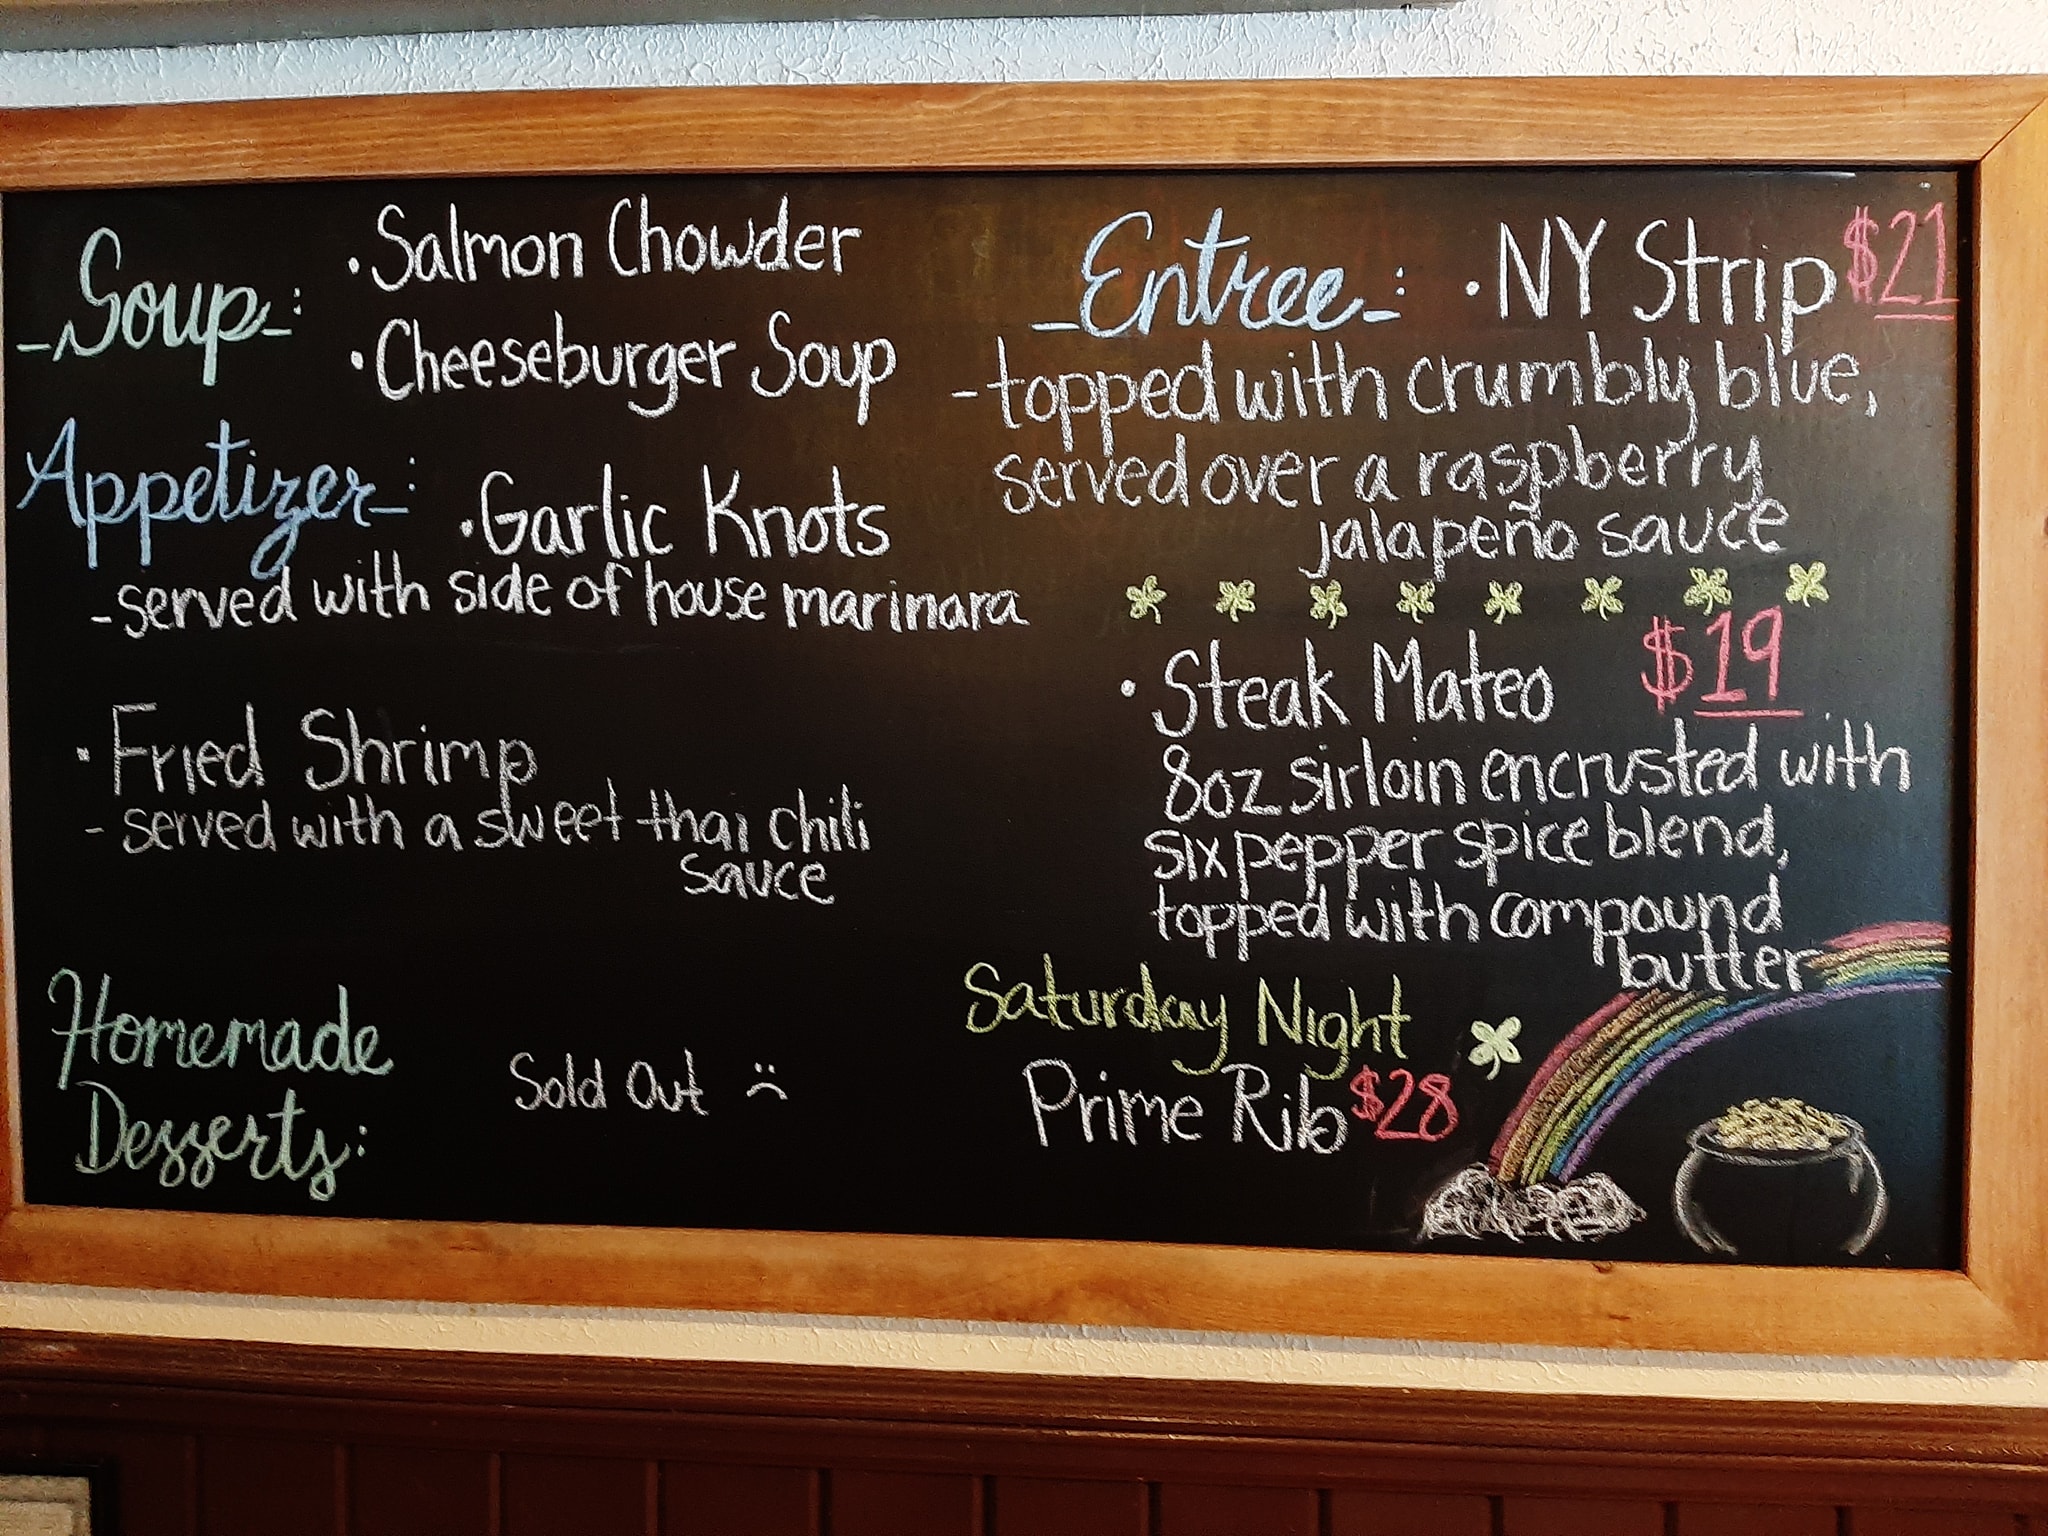 Soup: • Salmon Chowder
• Cheeseburger Soup
Appetizer: • Garlic Knots
- served with side of house marinara
• Fried Shrimp
- served with a sweet thai chili
sauce
Homemade
Desserts: Sold Out :(
Entree: • NY Strip $21
- topped with crumbly blue,
served over a raspberry
jalapeño sauce
• Steak Mateo $19
8oz sirloin encrusted with
six pepper spice blend,
topped with compound
butter
Saturday Night
Prime Rib $28